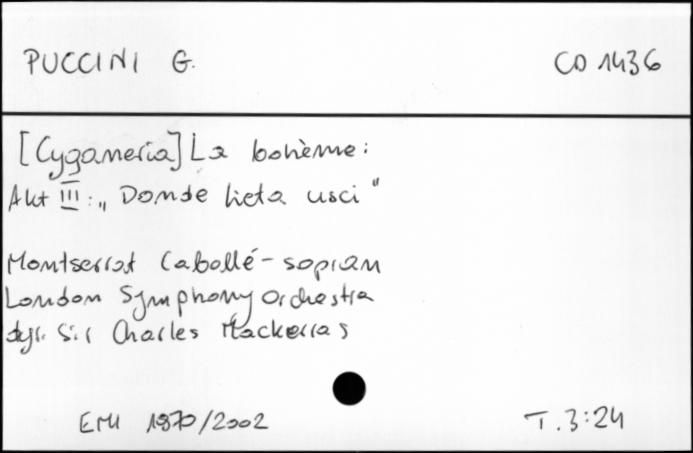 PUCCINI G. CD 1436
[Cyganeria] La bohème:
Akt III: „Donde lieta uscì"
Montserrat Caballé - sopran
London Symphony Orchestra
dyr. Sir Charles Mackerras
EMI 1970/2002 T. 3:24